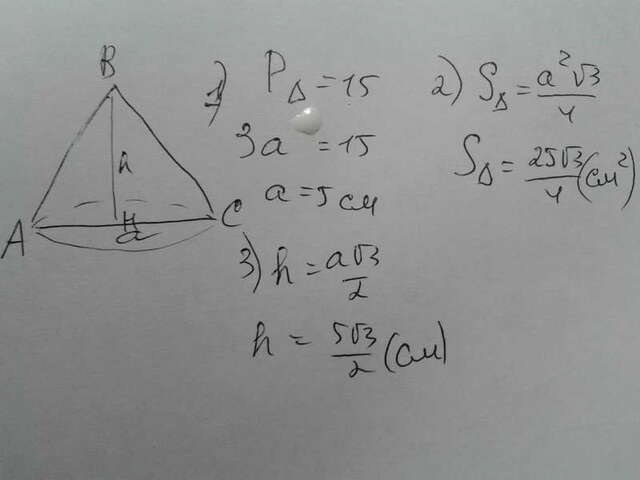 B
h
A
H
a
C
1) P_Δ = 15
3a = 15
a = 5 см
2) S_Δ = a²√3/4
S_Δ = 25√3/4 (см²)
3) h = a√3/2
h = 5√3/2 (см)